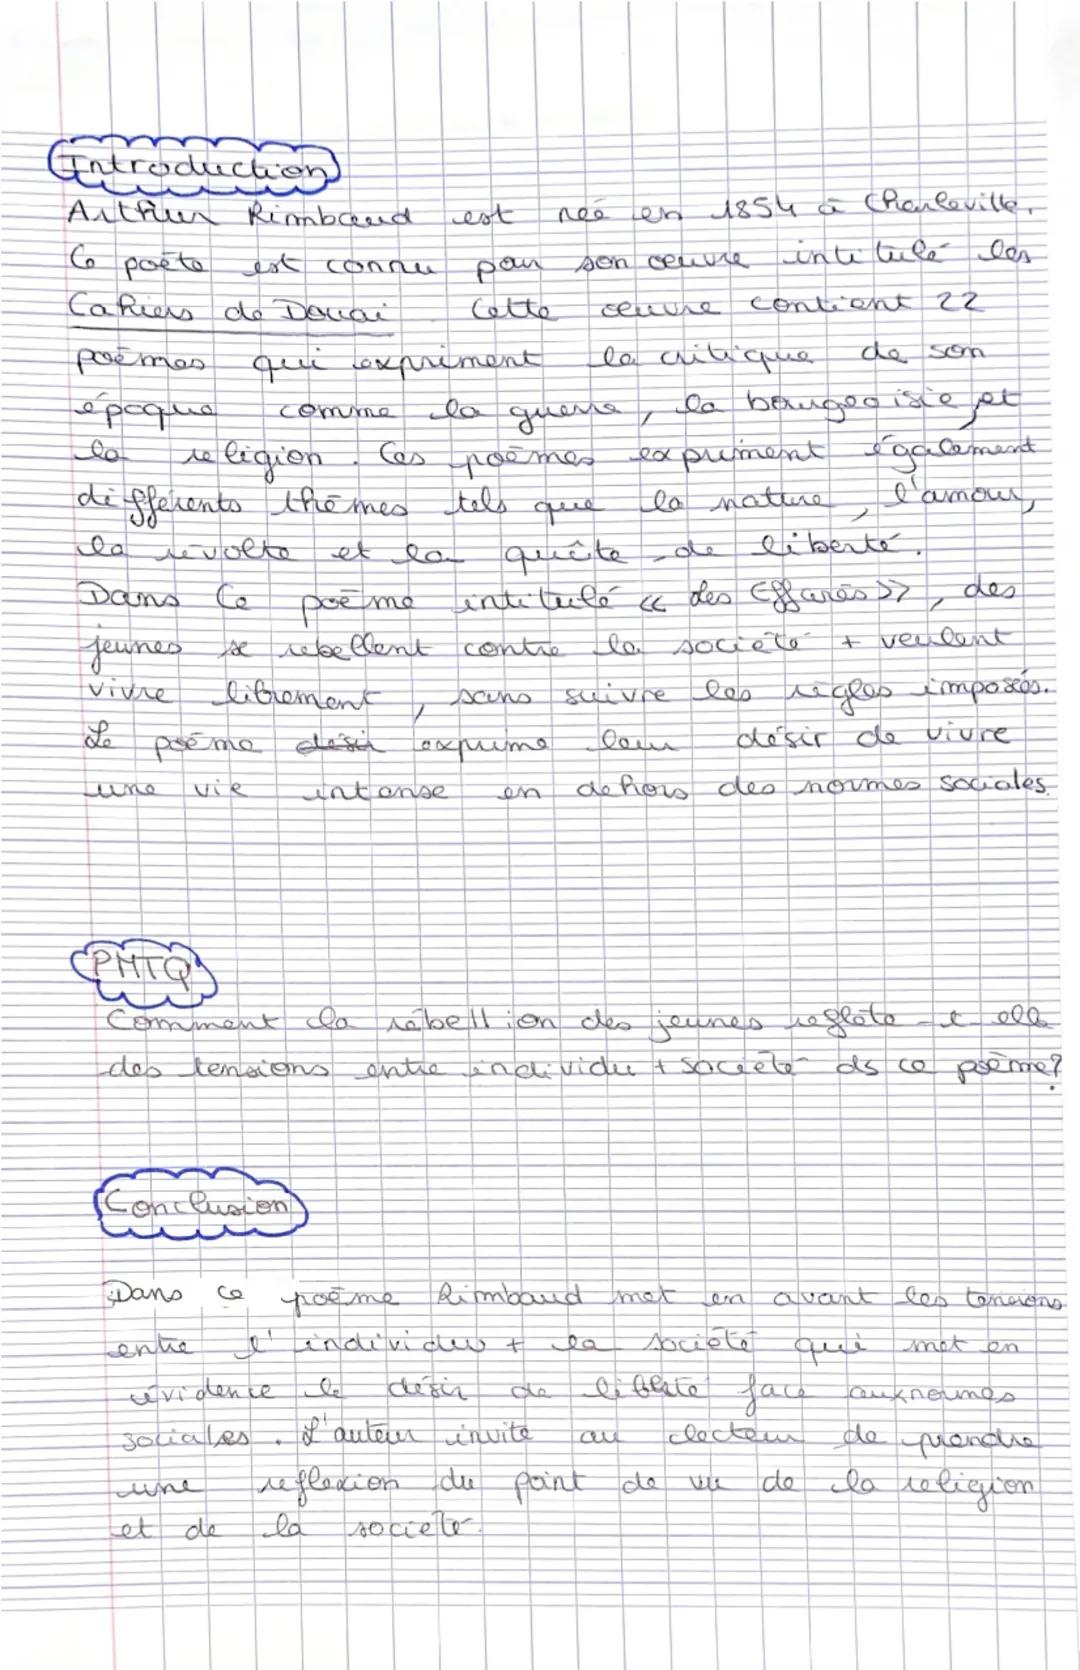 Introduction
Arthur Rimbaud est neé en 1854 à Charleville.
Ce poète est connu pour son oeuvre intitulé les
Cahiers de Douai. Cette oeuvre contient 22
poèmes qui expriment la critique de son
époque comme la guerre, la bourgeoisie et
la religion. Ces poèmes expriment également
différents thèmes tels que la nature, l'amour,
la révolte et la quête de liberté.
Dans ce poème intitulé « les Effarés », des
jeunes se rebellent contre la société + veulent
vivre librement, sans suivre les règles imposés.
Le poème exprime leur désir de vivre
une vie intense en dehors des normes sociales.
PMTQ
Comment la rébellion des jeunes reflète-t-elle
des tensions entre individu + société ds ce poème?
Conclusion
Dans ce poème Rimbaud met en avant les tensions
entre l'individu + la société qui met en
évidence le désir de liberté face aux normes
sociales. L'auteur invite au lecteur de prendre
une reflexion du point de vu de la religion
et de la société.